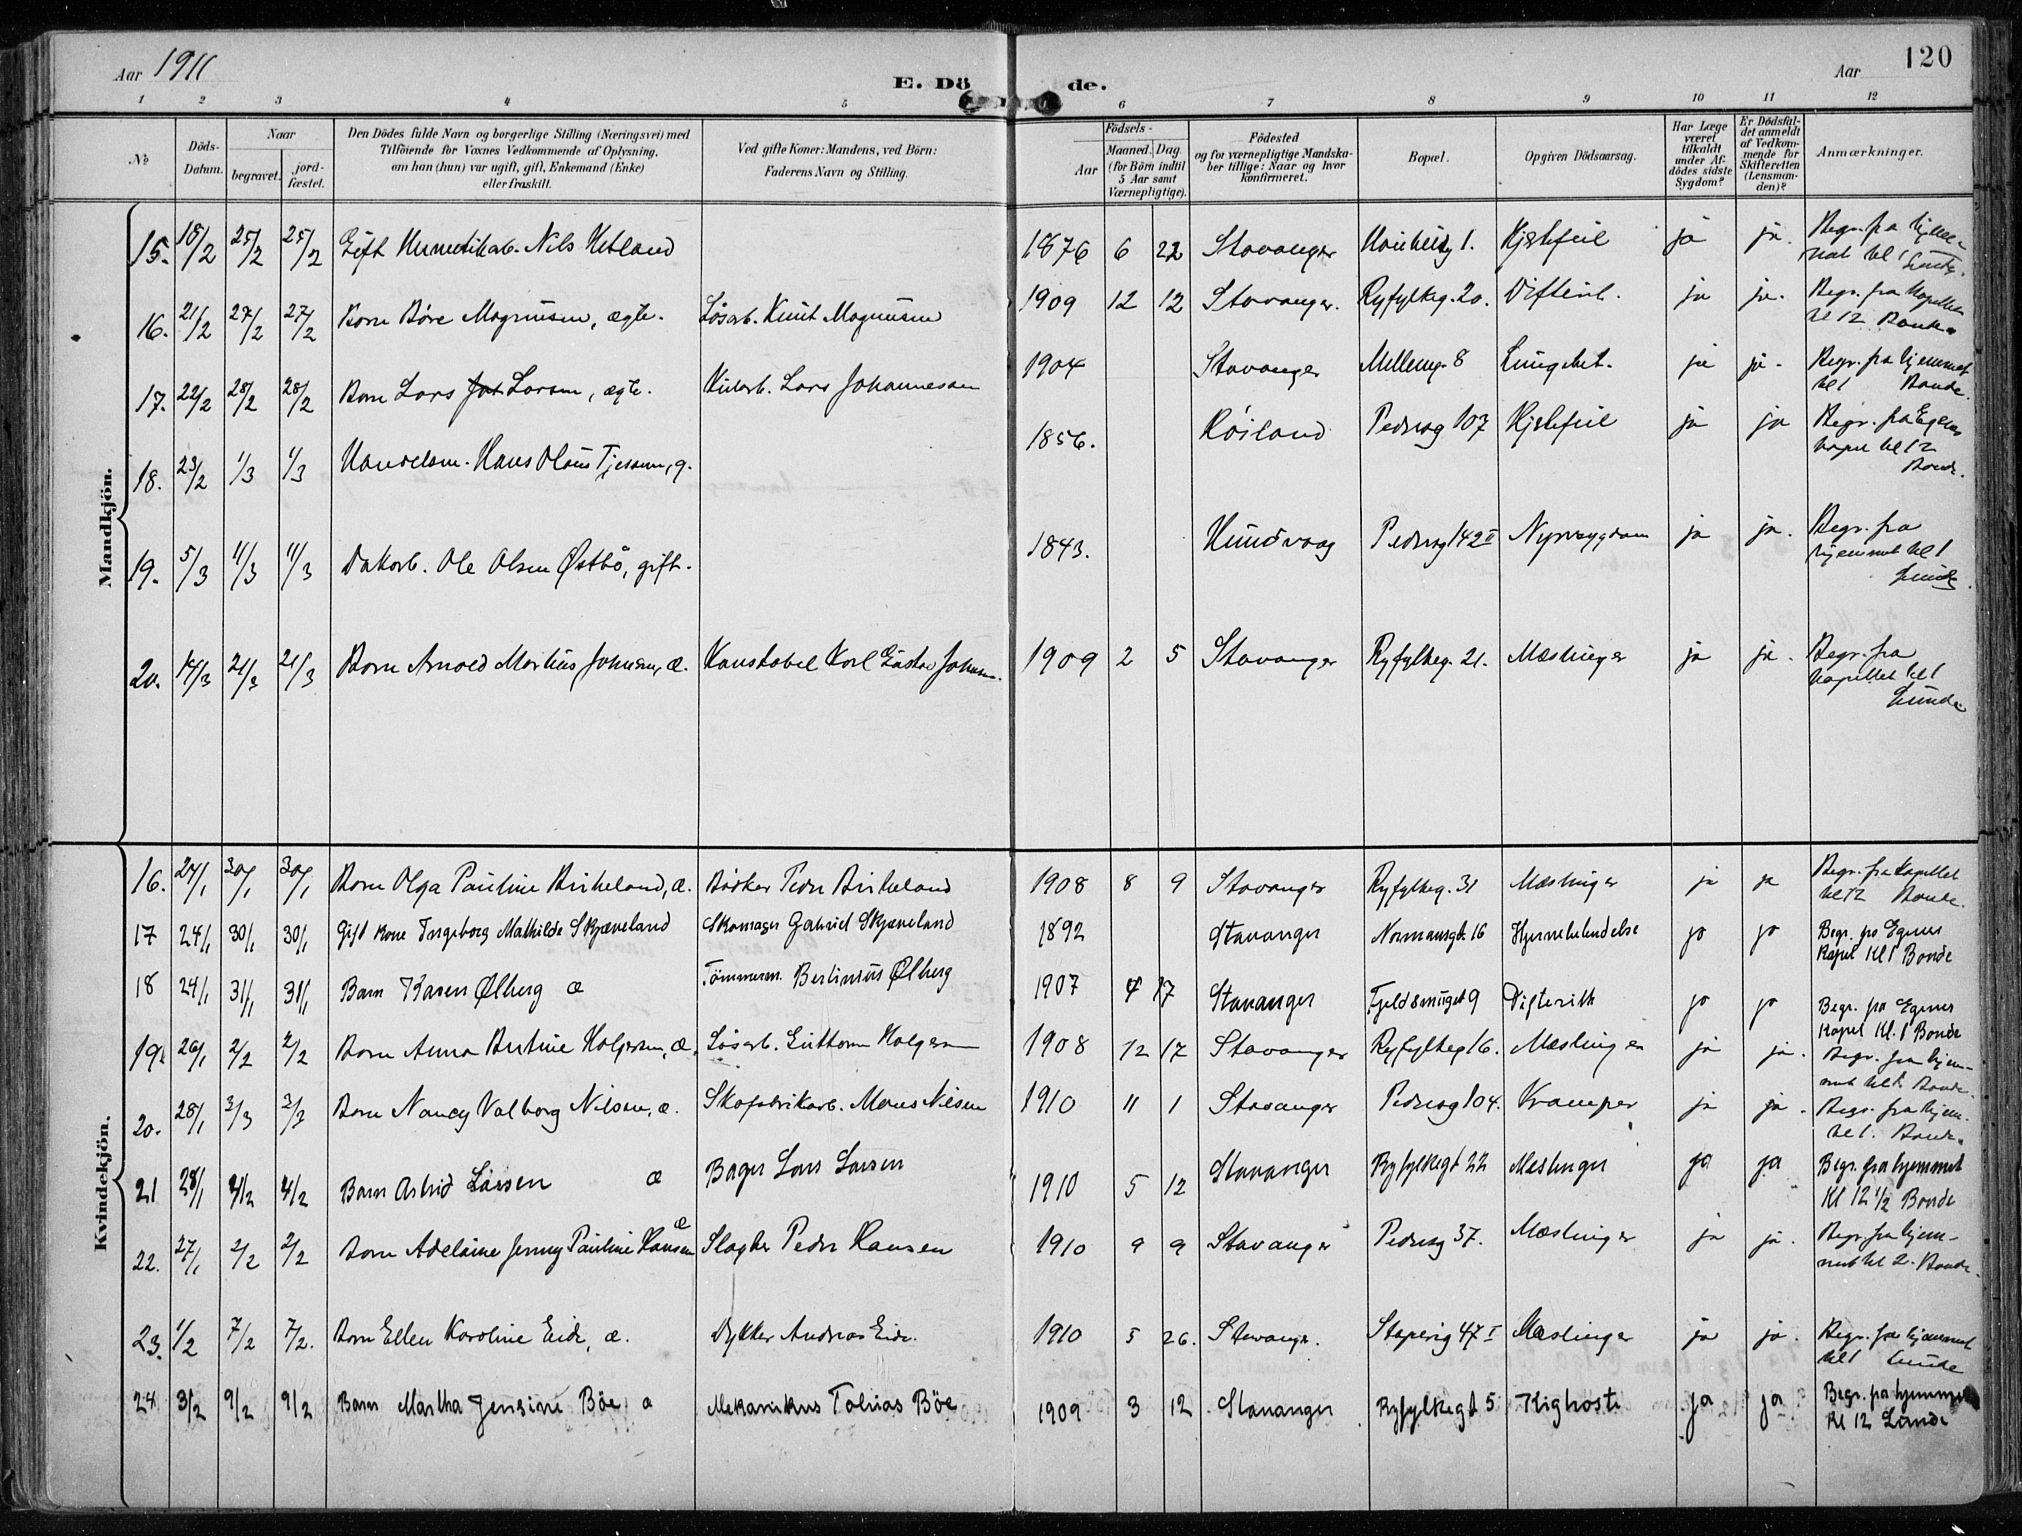 Aar 1911
E. Döde.
Aar
120
1 2 3 4 5 6 7 8 9 10 11 12
No
Döds-Datum.
Naar
begravet.
jord-fæstet.
Den Dödes fulde Navn og borgerlige Stilling (Næringsvei) med
Tilföiende for Voxnes Vedkommende af Oplysning,
om han (hun) var ugift, gift, Enkemand (Enke)
eller fraskilt.
Ved gifte Koner: Mandens, ved Börn:
Faderens Navn og Stilling.
Födsels-
Aar
Maaned. Dag.
(for Börn indtil
5 Aar samt
Værnepligtige).
Födested
og for værnepligtige Mandska-
ber tillige: Naar og hvor
konfirmeret.
Bopæl.
Opgiven Dödsaarsag.
Har Læge
været
tilkaldt
under Af-
dödes sidste
Sygdom?
Er Dödsfal-
det anmeldt
af Vedkom-
mende for
Skifteretten
(Lensman-
den)?
Anmærkninger.
Mandkjön.
15. 18/2 25/2 25/2 Gift Hermetikarb. Nils Hetland 1876 6 22 Stavanger 1. Hjertefeil ja ja. Begr. fra hjem-
met kl 1 Lunde.
16. 21/2 27/2 27/2 Barn Børe Magnusen, ægte. Løsarb. Knut Magnusen 1909 12 12 Stavanger. Ryfylkeg. 20. Difterit. ja ja. Begr. fra Kapellet
kl 12 Bonde.
17. 22/2 28/2 28/2 Barn Lars Larsen, ægte. Lars Johannesen 1904 Stavanger Mellemg. 8 Lungebet. ja ja. Begr. fra hjemmet
kl 1 Bonde.
18. 23/2 1/3 1/3 Handelsm. Hans Olaus Tjessem, g. 1856. Høiland Pedersg 107 Hjertefeil ja ja Begr. fra Egenes
kapel kl 12
Bonde.
19. 5/3 11/3 11/3 Ole Olsen Østbö, gift. 1843. Hundvaag Pedersg 142 II Nyresygdom ja ja. Begr. fra
hjemmet kl 1
Lunde.
20. 14/3 21/3 21/3 Barn Arnold Martius Johnsen, æ. Konstabel Karl Gustav Johnsen. 1909 2 5 Stavanger Ryfylkeg. 21. Mæslinger ja ja. Begr. fra
kapellet kl 1
Lunde
Kvindekjön.
16. 24/1 30/1 30/1 Barn Olga Pauline Birkeland, æ. Bödker Peder Birkeland 1908 8 9 Stavanger Ryfylkeg. 31 Mæslinger ja ja Begr. fra Kapellet
kl 12 Bonde.
17 24/1 30/1 30/1 Gift Kone Ingeborg Mathilde Skjæveland Skomager Gabriel Skjæveland 1892 Stavanger Normansgt. 16 Hjernebetændelse ja ja Begr. fra Egenes
Kapel Kl 1 Bonde
18 24/1 31/1 31/1 Barn Karen Ølberg æ Tömmerm. Bertinius Ølberg 1907 7 17 Stavanger Fjeldsmuget 9 Difterith ja ja Begr. fra Egenes
Kapel Kl. 1 Bonde
19. 26/1 2/2 2/2 Barn Anna Bertine Holgersen, æ. Løsarb. Guttorm Holgersen 1908 12 17 Stavanger Ryfylkeg 16. Mæslinger ja ja. Begr. fra hjem-
met kl 1. Bonde.
20. 28/1 3/3 3/3 Barn Nancy Valborg Nilsen, æ. Skofabrikarb. Mons Nilsen 1910 11 1 Stavanger Pedersg 104. Kramper ja ja. Begr. fra hjem.
kl 1. Bonde.
21 28/1 4/2 4/2 Barn Astrid Larsen æ Bager Lars Larsen 1910 5 12 Stavanger Ryfylkegt 22 Meslinger ja ja Begr. fra hjemmet
Kl 12 1/2 Bonde
22. 27/1 2/2 2/2 Barn Adelaine Jenny Pauline Hansen æ Slagter Peder Hansen 1910 9 9 Stavanger Pedersg 37. Mæslinger ja ja. Begr. fra hjem-
met kl 2. Bonde.
23. 1/2 7/2 7/2. Barn Ellen Karoline Eide, æ. Dykker Andreas Eide. 1910 5 26. Stavanger. 47 I Mæslinger ja ja. Begr. fra hjemmet
kl 1 Lunde
24 3/2 9/2 9/2 Barn Martha Jensine Böe æ Mekanikus Tobias Böe 1909 3 12 Stavanger Ryfylkegt 5 Kighoste ja ja Begr. fra hjemmet
Kl 12 Lunde